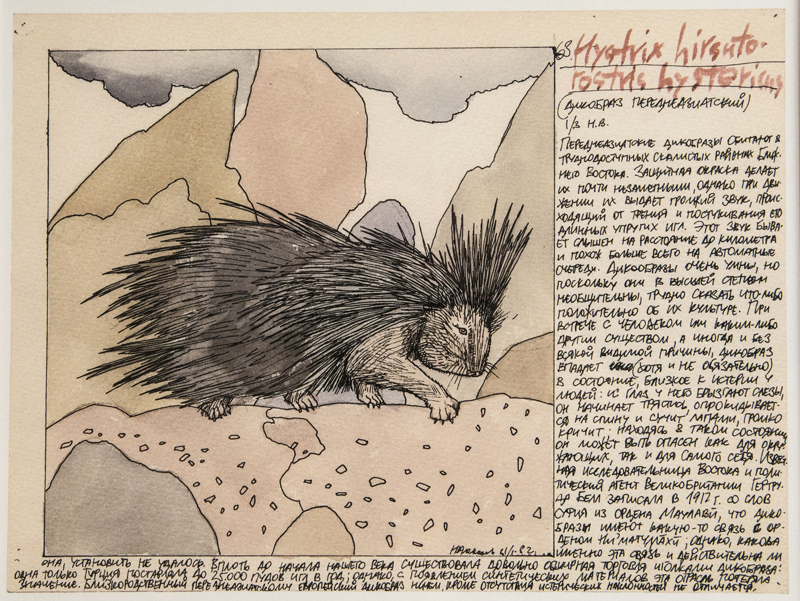 68. Hystrix hirsuto-
rostris hystericus
(ДИКОБРАЗ ПЕРЕДНЕАЗИАТСКИЙ)
1/3 Н.В.
ПЕРЕДНЕАЗИАТСКИЕ ДИКОБРАЗЫ ОБИТАЮТ В
ТРУДНОДОСТУПНЫХ СКАЛИСТЫХ РАЙОНАХ БЛИЖ-
НЕГО ВОСТОКА. ЗАЩИТНАЯ ОКРАСКА ДЕЛАЕТ
ИХ ПОЧТИ НЕЗАМЕТНЫМИ, ОДНАКО ПРИ ДВИ-
ЖЕНИИ ИХ ВЫДАЕТ ГРОМКИЙ ЗВУК, ПРОИС-
ХОДЯЩИЙ ОТ ТРЕНИЯ И ПОСТУКИВАНИЯ ЕГО
ДЛИННЫХ УПРУГИХ ИГЛ. ЭТОТ ЗВУК БЫВА-
ЕТ СЛЫШЕН НА РАССТОЯНИЕ ДО КИЛОМЕТРА
И ПОХОЖ БОЛЬШЕ ВСЕГО НА АВТОМАТНЫЕ
ОЧЕРЕДИ. ДИКОБРАЗЫ ОЧЕНЬ УМНЫ, НО
ПОСКОЛЬКУ ОНИ В ВЫСШЕЙ СТЕПЕНИ
НЕОБЩИТЕЛЬНЫ, ТРУДНО СКАЗАТЬ ЧТО-ЛИБО
ПОЛОЖИТЕЛЬНО ОБ ИХ КУЛЬТУРЕ. ПРИ
ВСТРЕЧЕ С ЧЕЛОВЕКОМ ИЛИ КАКИМ-ЛИБО
ДРУГИМ СУЩЕСТВОМ, А ИНОГДА И БЕЗ
ВСЯКОЙ ВИДИМОЙ ПРИЧИНЫ, ДИКОБРАЗ
ВПАДАЕТ (ХОТЯ И НЕ ОБЯЗАТЕЛЬНО)
В СОСТОЯНИЕ, БЛИЗКОЕ К ИСТЕРИИ У
ЛЮДЕЙ: ИЗ ГЛАЗ У НЕГО БРЫЗГАЮТ СЛЕЗЫ,
ОН НАЧИНАЕТ ТРЯСТИСЬ, ОПРОКИДЫВАЕТ-
СЯ НА СПИНУ И СУЧИТ ЛАПАМИ, ГРОМКО
КРИЧИТ. НАХОДЯСЬ В ТАКОМ СОСТОЯНИИ,
ОН МОЖЕТ БЫТЬ ОПАСЕН КАК ДЛЯ ОКРУ-
ЖАЮЩИХ, ТАК И ДЛЯ САМОГО СЕБЯ. ИЗВЕСТ-
НАЯ ИССЛЕДОВАТЕЛЬНИЦА ВОСТОКА И ПОЛИ-
ТИЧЕСКИЙ АГЕНТ ВЕЛИКОБРИТАНИИ ГЕРТРУ-
ДА БЕЛЛ ЗАПИСАЛА В 1912 Г. СО СЛОВ
СУФИЯ ИЗ ОРДЕНА МАУЛАВИ, ЧТО ДИКО-
БРАЗЫ ИМЕЮТ КАКУЮ-ТО СВЯЗЬ С ОР-
ДЕНОМ НИ'МАТУЛЛАХИ; ОДНАКО, КАКОВА
ИМЕННО ЭТА СВЯЗЬ И ДЕЙСТВИТЕЛЬНА ЛИ
ОНА, УСТАНОВИТЬ НЕ УДАЛОСЬ. ВПЛОТЬ ДО НАЧАЛА НАШЕГО ВЕКА СУЩЕСТВОВАЛА ДОВОЛЬНО ОБШИРНАЯ ТОРГОВЛЯ ИГОЛКАМИ ДИКОБРАЗА:
ОДНА ТОЛЬКО ТУРЦИЯ ПОСТАВЛЯЛА ДО 25.000 ПУДОВ ИГЛ В ГОД; ОДНАКО, С ПОЯВЛЕНИЕМ СИНТЕТИЧЕСКИХ МАТЕРИАЛОВ ЭТА ОТРАСЛЬ ПОТЕРЯЛА
ЗНАЧЕНИЕ. БЛИЗКОРОДСТВЕННЫЙ ПЕРЕДНЕАЗИАТСКОМУ ЕВРОПЕЙСКИЙ ДИКОБРАЗ НИЧЕМ, КРОМЕ ОТСУТСТВИЯ ИСТЕРИЧЕСКИХ НАКЛОННОСТЕЙ НЕ ОТЛИЧАЕТСЯ.